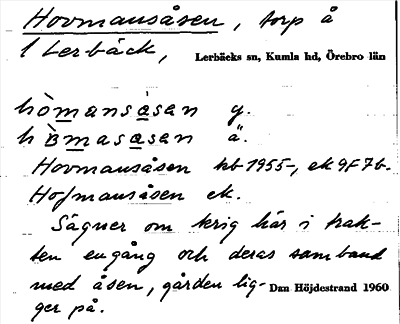 Hovmansåsen, torp å
l Lerbäck,
Lerbäcks sn, Kumla hd, Örebro län
hòmansåsan y.
hòmasåsan ä.
Hovmansåsen kb 1955-, ek 9F7b.
Hofmansåsen ek.
Sägner om krig här i trak-
ten engång och deras samband
med åsen, gården lig-
Dan Höjdestrand 1960
ger på.